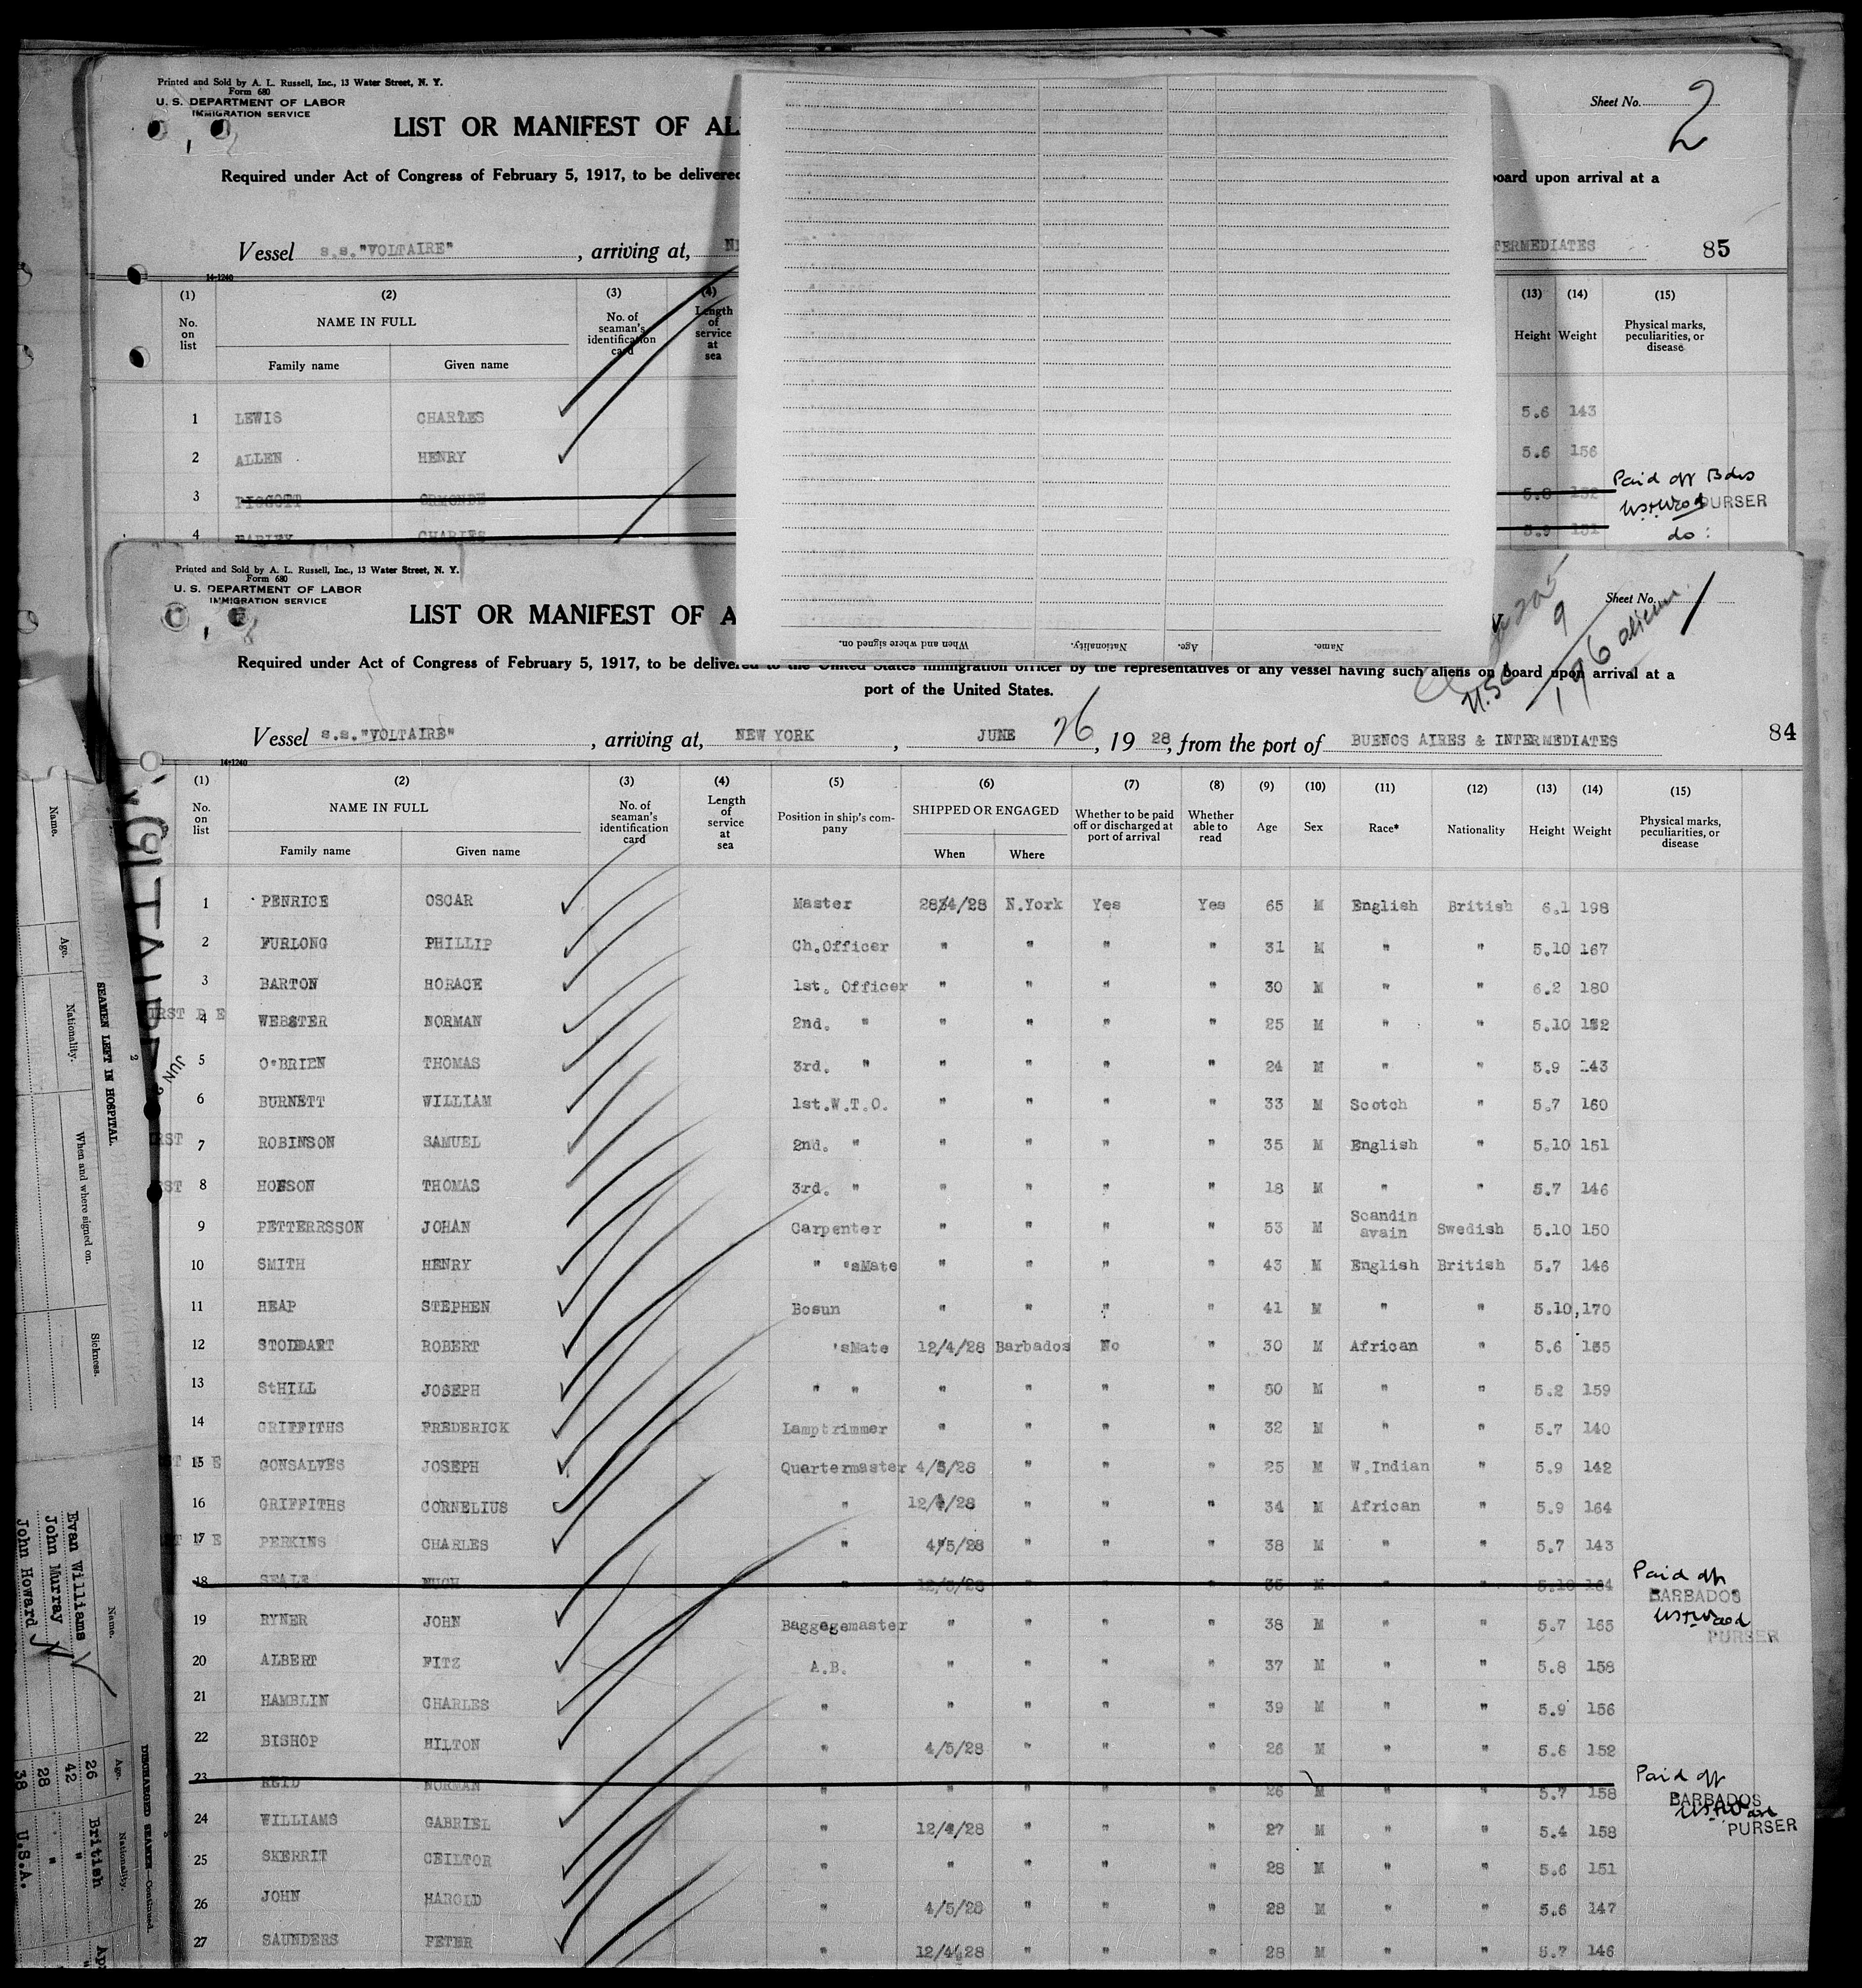 Printed and Sold by A. L. Russell, Inc., 13 Water Street, N. Y.
Form 680
U. S. DEPARTMENT OF LABOR
IMMIGRATION SERVICE
Sheet No. 2
LIST OR MANIFEST OF AL
Required under Act of Congress of February 5, 1917, to be delivered board upon arrival at a
Vessel s.s."VOLTAIRE" , arriving at, TERMEDIATES 85
14-1240
(1) (2) (3) (4) (13) (14) (15)
No. on list NAME IN FULL No. of seaman's identification card Length of service at sea Height Weight Physical marks, peculiarities, or disease
Family name Given name
1 LEWIS CHARLES 5.6 143
2 ALLEN HENRY 5.6 156
3 PIGGOTT ORMONDE 5.8 152 Paid off Bdos
PURSER
4 CHARLES 5.9 do:
When and where signed on. Nationality. Age. Name.
Printed and Sold by A. L. Russell, Inc., 13 Water Street, N. Y.
Form 680
U. S. DEPARTMENT OF LABOR
IMMIGRATION SERVICE
Sheet No. 1
205
U.S.C. 9
196 aliens
LIST OR MANIFEST OF A
Required under Act of Congress of February 5, 1917, to be delivered to the United States immigration officer by the representatives of any vessel having such aliens on board upon arrival at a
port of the United States.
Vessel s.s."VOLTAIRE" , arriving at, NEW YORK , JUNE 26 , 19 28, from the port of BUENOS AIRES & INTERMEDIATES 84
14-1240
(1) (2) (3) (4) (5) (6) (7) (8) (9) (10) (11) (12) (13) (14) (15)
No. on list NAME IN FULL No. of seaman's identification card Length of service at sea Position in ship's company SHIPPED OR ENGAGED Whether to be paid off or discharged at port of arrival Whether able to read Age Sex Race* Nationality Height Weight Physical marks, peculiarities, or disease
Family name Given name When Where
1 PENRICE OSCAR Master 28/4/28 N.York Yes Yes 65 M English British 6.1 198
2 FURLONG PHILLIP Ch.Officer " " " " 31 M " " 5.10 167
3 BARTON HORACE 1st. Officer " " " " 30 M " " 6.2 180
4 WEBSTER NORMAN 2nd. " " " " " 25 M " " 5.10 152
5 O'BRIEN THOMAS 3rd. " " " " " 24 M " " 5.9 143
6 BURNETT WILLIAM 1st.W.T.O. " " " " 33 M Scotch " 5.7 160
7 ROBINSON SAMUEL 2nd. " " " " " 35 M English " 5.10 151
8 HOBSON THOMAS 3rd. " " " " " 18 M " " 5.7 146
9 PETTERRSSON JOHAN Carpenter " " " " 53 M Scandin avain Swedish 5.10 150
10 SMITH HENRY " 'sMate " " " " 43 M English British 5.7 146
11 HEAP STEPHEN Bosun " " " " 41 M " " 5.10 170
12 STODDART ROBERT 'sMate 12/4/28 Barbados No " 30 M African " 5.6 155
13 StHILL JOSEPH " " " " " " 50 M " " 5.2 159
14 GRIFFITHS FREDERICK Lamptrimmer " " " " 32 M " " 5.7 140
15 GONSALVES JOSEPH Quartermaster 4/5/28 " " " 25 M W.Indian " 5.9 142
16 GRIFFITHS CORNELIUS " 12/4/28 " " " 34 M African " 5.9 164
17 PERKINS CHARLES " 4/5/28 " " " 38 M " " 5.7 143
18 SEALE HUGH " 12/5/28 " " " 35 M " " 5.10 164 Paid off
BARBADOS
PURSER
19 RYNER JOHN Baggegemaster " " " " 38 M " " 5.7 165
20 ALBERT FITZ A.B. " " " " 37 M " " 5.8 158
21 HAMBLIN CHARLES " " " " " 39 M " " 5.9 156
22 BISHOP HILTON " 4/5/28 " " " 26 M " " 5.6 152
23 REID NORMAN " " " " " 26 M " " 5.7 158 Paid off
BARBADOS
PURSER
24 WILLIAMS GABRIEL " 12/4/28 " " " 27 M " " 5.4 158
25 SKERRIT CEILTOR " " " " " 28 M " " 5.6 151
26 JOHN HAROLD " 4/5/28 " " " 28 M " " 5.6 147
27 SAUNDERS PETER " 12/4/28 " " " 28 M " " 5.7 146
SEAMEN LEFT IN HOSPITAL.
2
Name. Age. Nationality. When and where signed on. Sickness.
DISCHARGED SEAMEN—Continued.
Name. Age. Nationality.
Evan Williams 26 British
John Murray 42 "
28 "
John Howard 38 U.S.A.
JUN 2